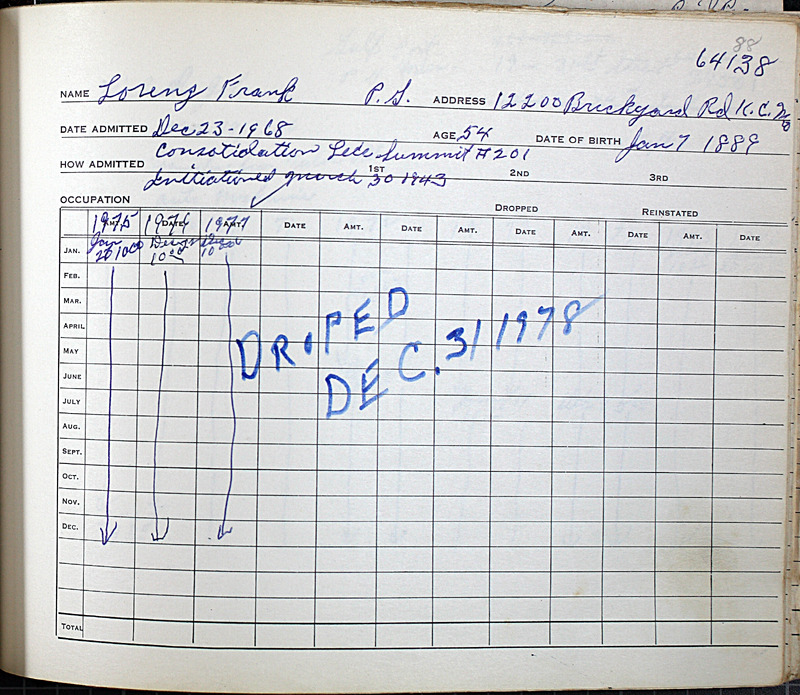 88
64138
NAME Loreng Frank P.S. ADDRESS 12200 Brickyard Rd K.C.
DATE ADMITTED Dec 23-1968 AGE 54 DATE OF BIRTH Jan 7 1889
Consolidation Lees Summit #201
HOW ADMITTED 1ST 2ND 3RD
Initiationed March 30 1943
OCCUPATION DROPPED REINSTATED
1975 1976 1977
AMT. DATE AMT. DATE AMT. DATE AMT. DATE AMT. DATE AMT. DATE
JAN. Jan
20 10.00 10.00 10.00
FEB.
MAR.
APRIL
MAY
JUNE
JULY
AUG.
SEPT.
OCT.
NOV.
DEC.
TOTAL
DROPED
DEC. 31 1978